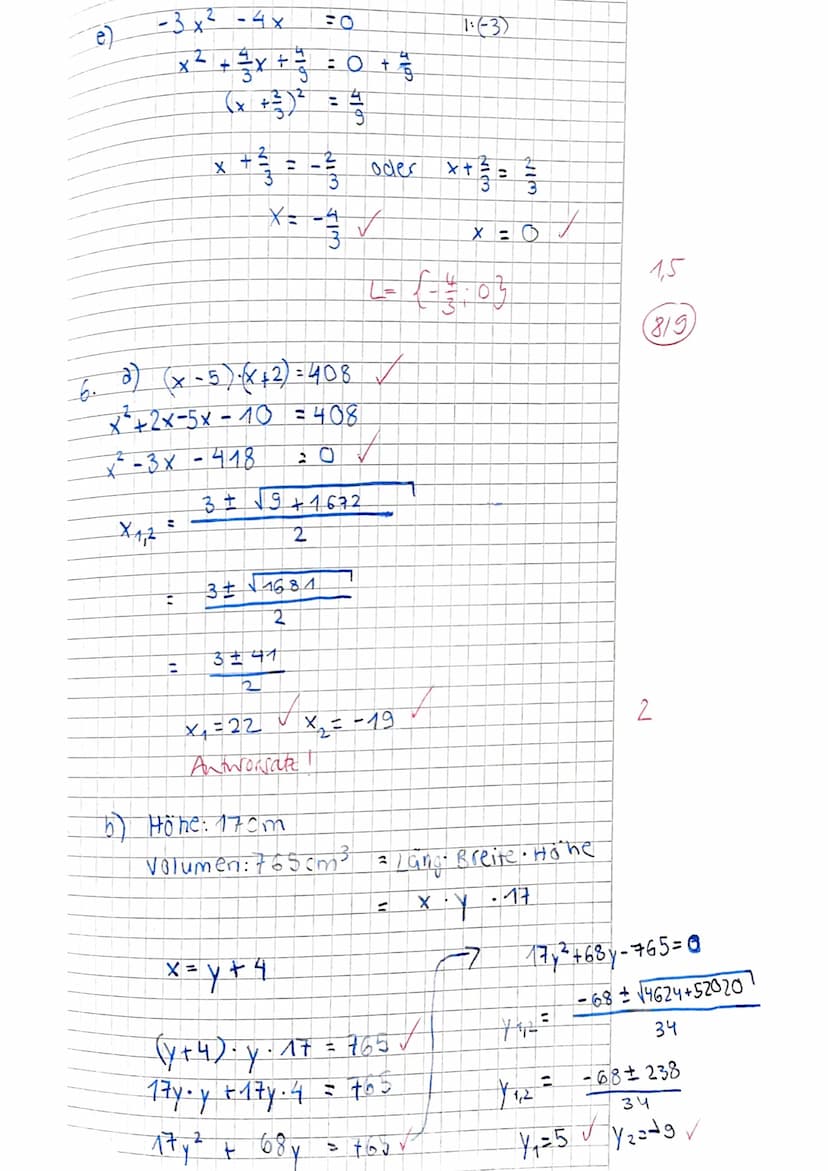 e) -3x² - 4x = 0 |:(-3)
x² + 4/3x + 4/9 = 0 + 4/9
(x + 2/3)² = 4/9
x + 2/3 = -2/3 oder x + 2/3 = 2/3
x = -4/3 ✓ x = 0 ✓
1,5
L = {-4/3; 0}
8/9
6. a) (x - 5)·(x+2) = 408 ✓
x² + 2x - 5x - 10 = 408
x² - 3x - 418 = 0 ✓
x₁,₂ = (3 ± √(9 + 1672))/2
= (3 ± √1681)/2
= (3 ± 41)/2
x₁ = 22 ✓ x₂ = -19 ✓
2
Antwortsatz!
b) Höhe: 17cm
Volumen: 765cm³ = Läng · Breite · Höhe
= x · y · 17
x = y + 4
(y+4) · y · 17 = 765 ✓
17y · y + 17y · 4 = 765
17y² + 68y = 765 ✓
→ 17y² + 68y - 765 = 0
y₁,₂ = (-68 ± √(4624 + 52020))/34
y₁,₂ = (-68 ± 238)/34
y₁ = 5 ✓ y₂ = -9 ✓